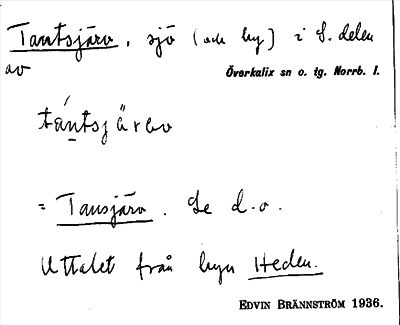 Tantsjärv, sjö (och by) i S. delen
av Överkalix sn o. tg. Norrb. l.
tá̱ntsjärəv
= Tansjärv. Se d.o.
Uttalet från byn Heden.
EDVIN BRÄNNSTRÖM 1936.